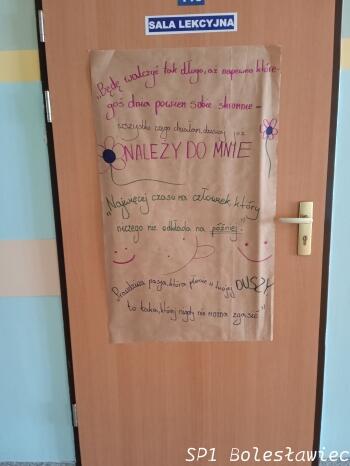 SALA LEKCYJNA
„Będę walczyć tak długo, aż pewnego które-
goś dnia powiem sobie skromnie -
wszystko czego chciałam dzisiaj już
NALEŻY DO MNIE
„Najwięcej czasu ma człowiek, który
niczego nie odkłada na później."
„Prawdziwa pasja, która płonie w twojej DUSZY,
to taka, której nigdy nie można zgasić"
SP1 Bolesławiec